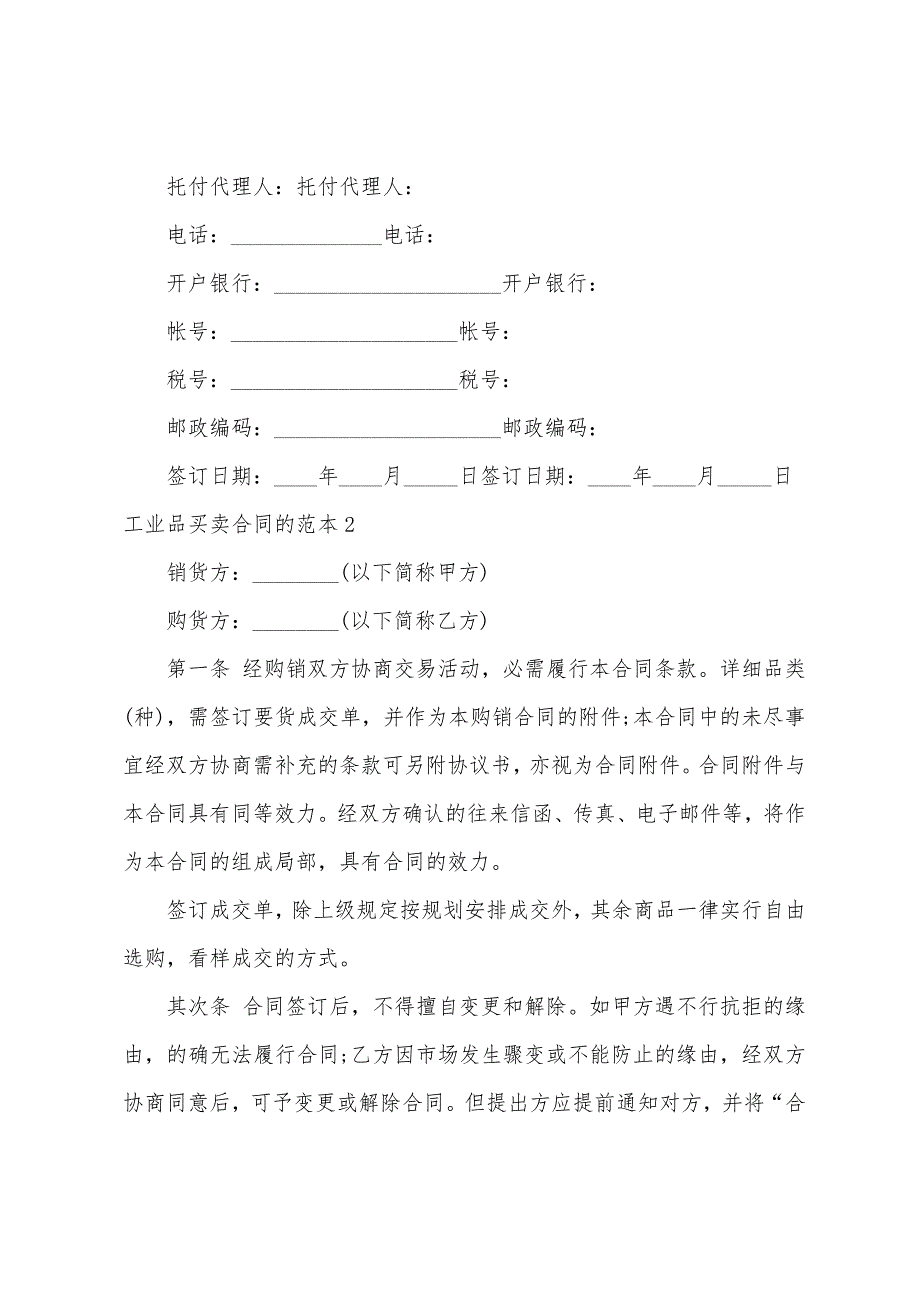 托付代理人：托付代理人：
电话：______________电话：
开户银行：_____________________开户银行：
帐号：_____________________帐号：
税号：_____________________税号：
邮政编码：_____________________邮政编码：
签订日期：____年____月_____日签订日期：____年____月_____日
工业品买卖合同的范本2
销货方：________(以下简称甲方)
购货方：________(以下简称乙方)
第一条 经购销双方协商交易活动，必需履行本合同条款。详细品类
(种)，需签订要货成交单，并作为本购销合同的附件;本合同中的未尽事
宜经双方协商需补充的条款可另附协议书，亦视为合同附件。合同附件与
本合同具有同等效力。经双方确认的往来信函、传真、电子邮件等，将作
为本合同的组成局部，具有合同的效力。
签订成交单，除上级规定按规划安排成交外，其余商品一律实行自由
选购，看样成交的方式。
其次条 合同签订后，不得擅自变更和解除。如甲方遇不行抗拒的缘
由，的确无法履行合同;乙方因市场发生骤变或不能防止的缘由，经双方
协商同意后，可予变更或解除合同。但提出方应提前通知对方，并将“合